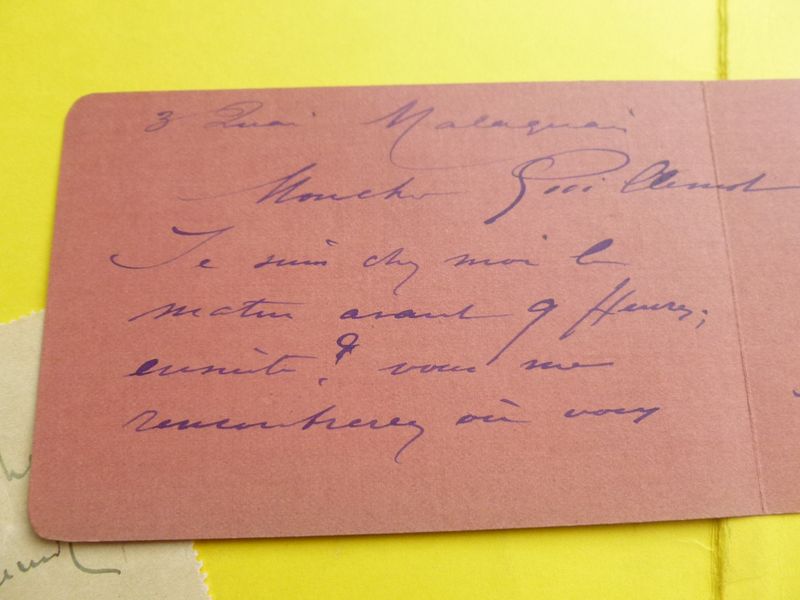 3 Quai Malaquai
Mon cher Guillemot
Je suis chez moi le
matin avant 9 Heures;
ensuite, ? vous me
rencontrerez où vous